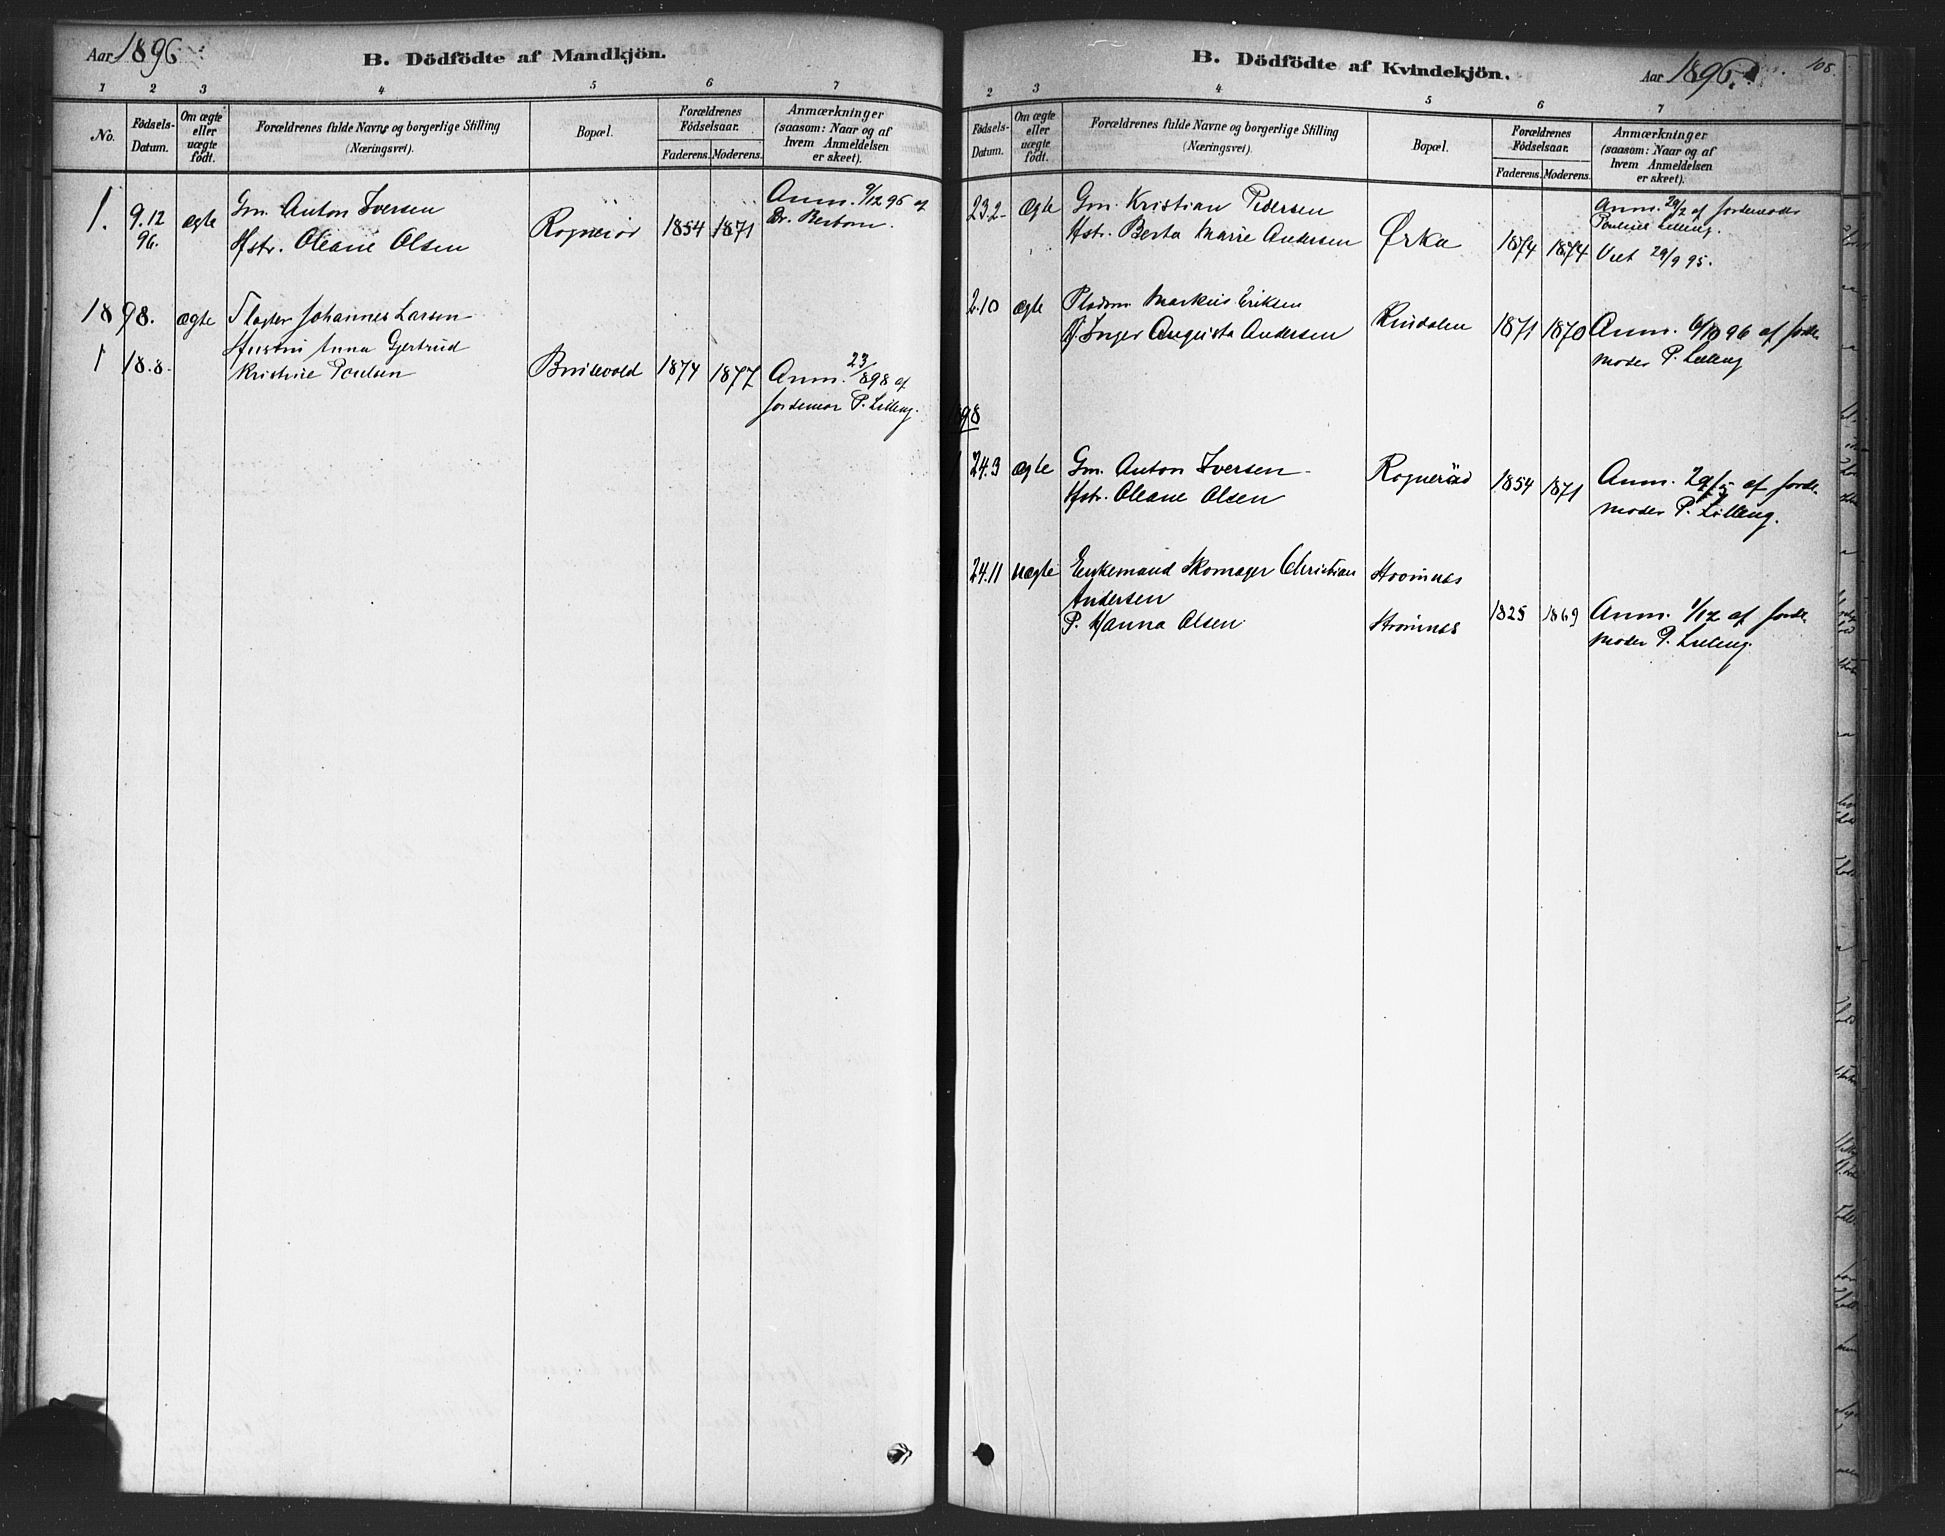 Aar 1896
B. Dödfödte af Mandkjön.
1 2 3 4 5 6 7
No.
Födsels-
Datum.
Om ægte
eller
uægte
født.
Forældrenes fulde Navne og borgerlige Stilling
(Næringsvei).
Bopæl.
Forældrenes
Födselsaar.
Faderens. Moderens.
Anmærkninger
(saasom: Naar og af
hvem Anmeldelsen
er skeet).
1. 9.12 96. ægte
Gm. Anton Iversen
Hstr. Oleane Olsen
Rogneröd
1854 1871
Anm. 9/12 96 af
Dr. Berbom.
1898.
ægte
Slagter Johannes Larsen
Hustru Anna Gjertrud
Kristine Poulsen
1 18.8.
Brusevold
1874 1877
Anm. 23/8 98 af
Jordemor P. Lilleng.
B. Dödfödte af Kvindekjön.
Aar 1896.
108.
2 3 4 5 6 7
Födsels-
Datum.
Om ægte
eller
uægte
födt.
Forældrenes fulde Navne og borgerlige Stilling
(Næringsvei).
Bopæl.
Forældrenes
Födselsaar.
Faderens. Moderens.
Anmærkninger
(saasom: Naar og af
hvem Anmeldelsen
er skeet).
23.2. Ægte
Gm. Kristian Pedersen
Hstr. Berta Marie Andersen
Ørka
1874 1874
Anm. 29/2 af Jordemoder
Pauline Lilleng.
Viet 29/9 95.
2.10 ægte
Pladsm. Markus Eriksen
H. Inger Augusta Andersen
1871 1870
Anm. 6/10 96 af Jorde-
moder P. Lilleng
98
24.3 ægte
Gm. Anton Iversen
Hstr. Oleane Olsen
Rogneröd
1854 1871
Anm. 29/5 af Jorde-
moder P. Lilleng.
24.11 uægte
Enkemand Skomager Christian
Andersen
P. Hanna Olsen
Stromnes
Stromnes
1825 1869
Anm. 1/12 af Jorde-
moder P. Lilleng.